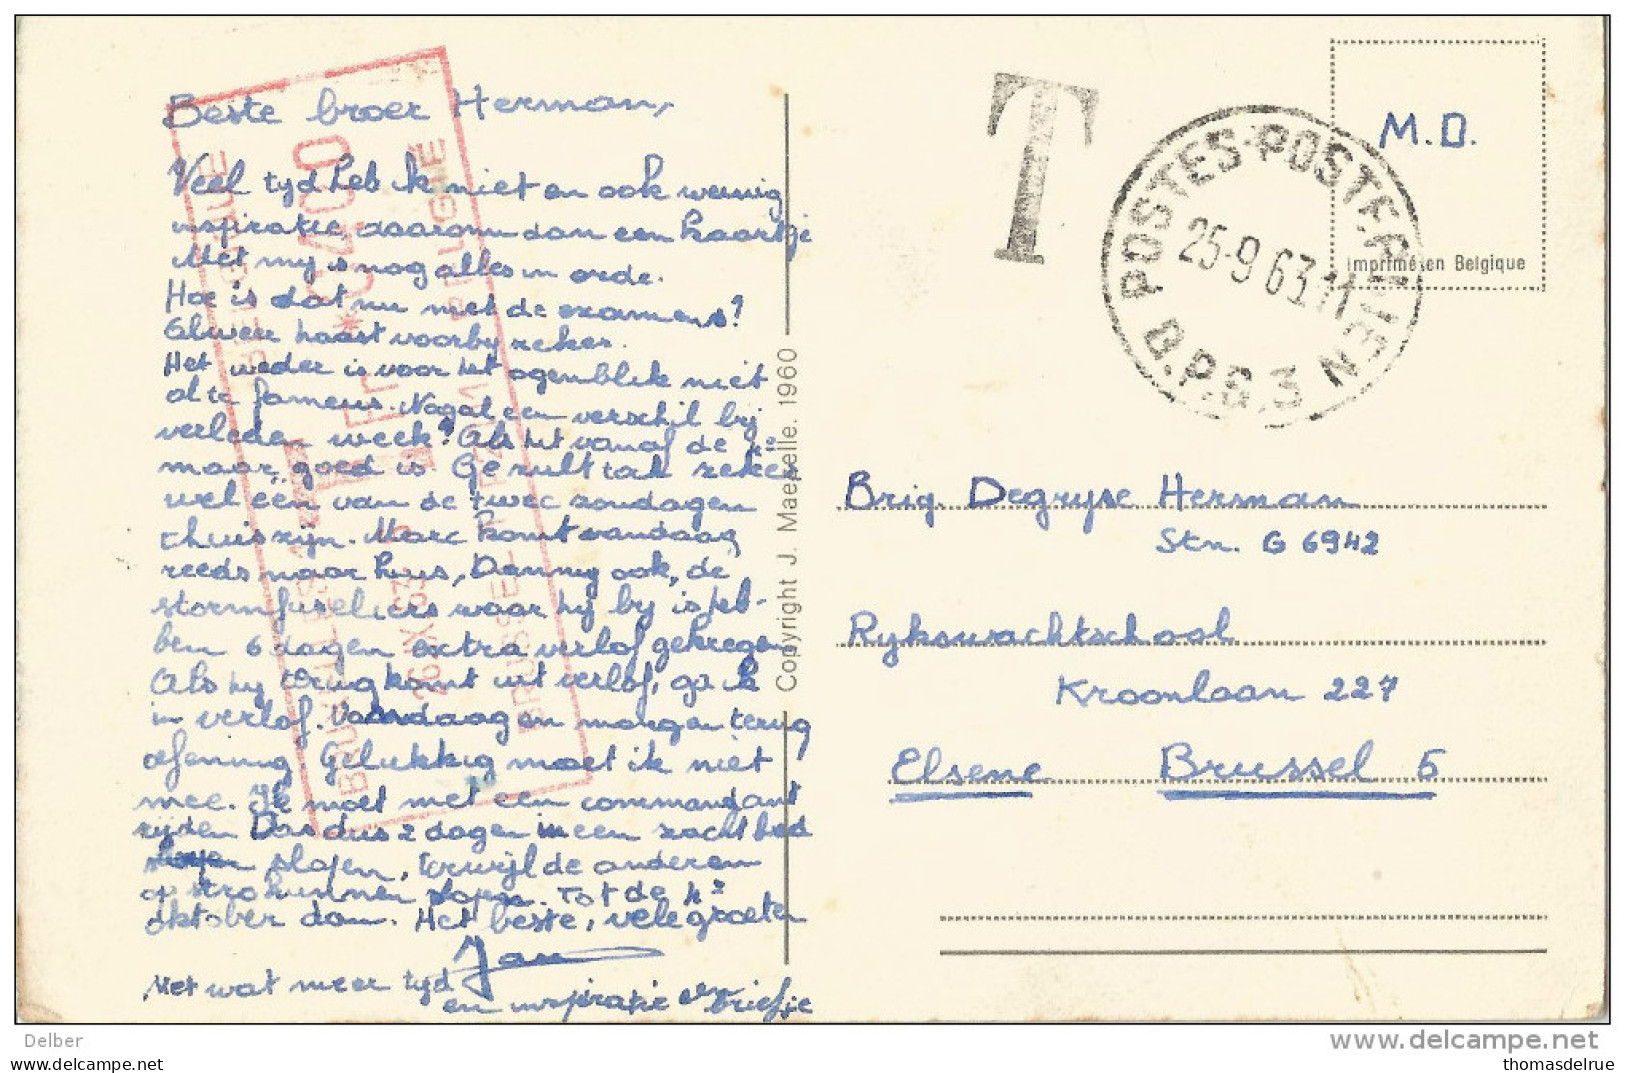 Beste broer Herman,
Veel tyd heb ik niet en ook weinig
inspiratie, daarom dan een kaartje
Met my is nog alles in orde.
Hoe is dat nu met de examens?
Alweer haast voorby zeker.
Het weder is voor het ogenblik niet
al te fameus. Nogal een verschil bij
verleden week? Als het vanaf de 4e
maar goed is. Ge zult tak zeker
wel één van de twee zondagen
thuis zyn. Marc komt vandaag
reeds naar huis, Danny ook, de
stormfuseliers waar hij by is heb-
ben 6 dagen extra verlof gekregen
Als hy terug komt uit verlof, ga ik
in verlof. Vandaag en morgen terug
oefening. Gelukkig moet ik niet
mee. Ik moet met een commandant
rijden Das dus 2 dagen in een zacht bed
slapen, terwijl de anderen
op stro kunnen slapen. Tot de 4e
oktober dan. Het beste, vele groeten
Jan
Met wat meer tyd
en inspiratie een briefje
BELGIQUE
0400
BELGIË
BRUXELLES
16 IX 63
BRUSSEL
Copyright J. Maeselle. 1960
T
POSTES-POSTERIJEN
25-9 63-11
D.P.G.3
M.D.
Imprimé en Belgique
Brig. Degryse Herman
Stn. G 6942
Rykswachtschool
Kroonlaan 227
Elsene Brussel 5
Delber
thomasdelrue
delcampe.net
thomasdelrue